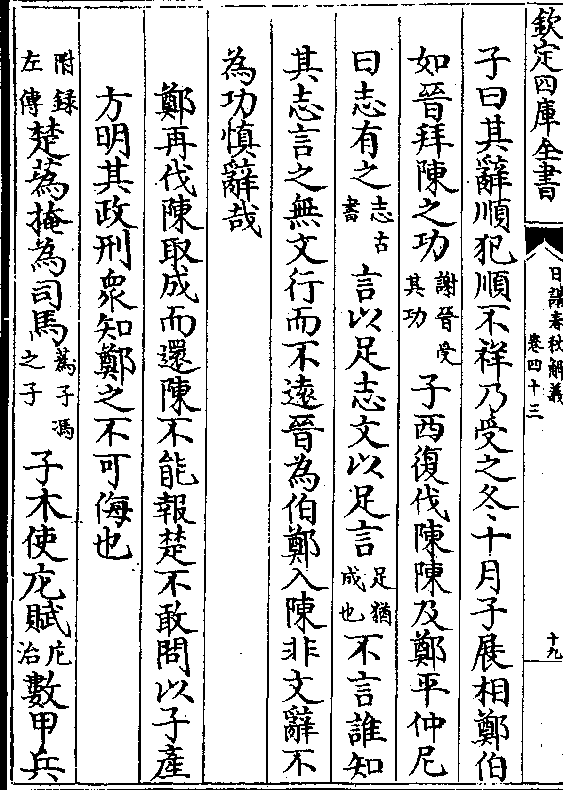 欽定四庫全書
日講春秋解義
卷四十三
十九
子曰其辭順犯順不祥乃受之冬十月子展相鄭伯
如晉拜陳之功謝晉受其功子西復伐陳陳及鄭平仲尼
曰志有之志古書言以足志文以足言足猶成也不言誰知
其志言之無文行而不遠晉為伯鄭入陳非文辭不
為功慎辭哉
鄭再伐陳取成而還陳不能報楚不敢問以子產
方明其政刑衆知鄭之不可侮也
附録左傳楚蒍掩為司馬蒍子馮之子子木使庀賦庀治數甲兵